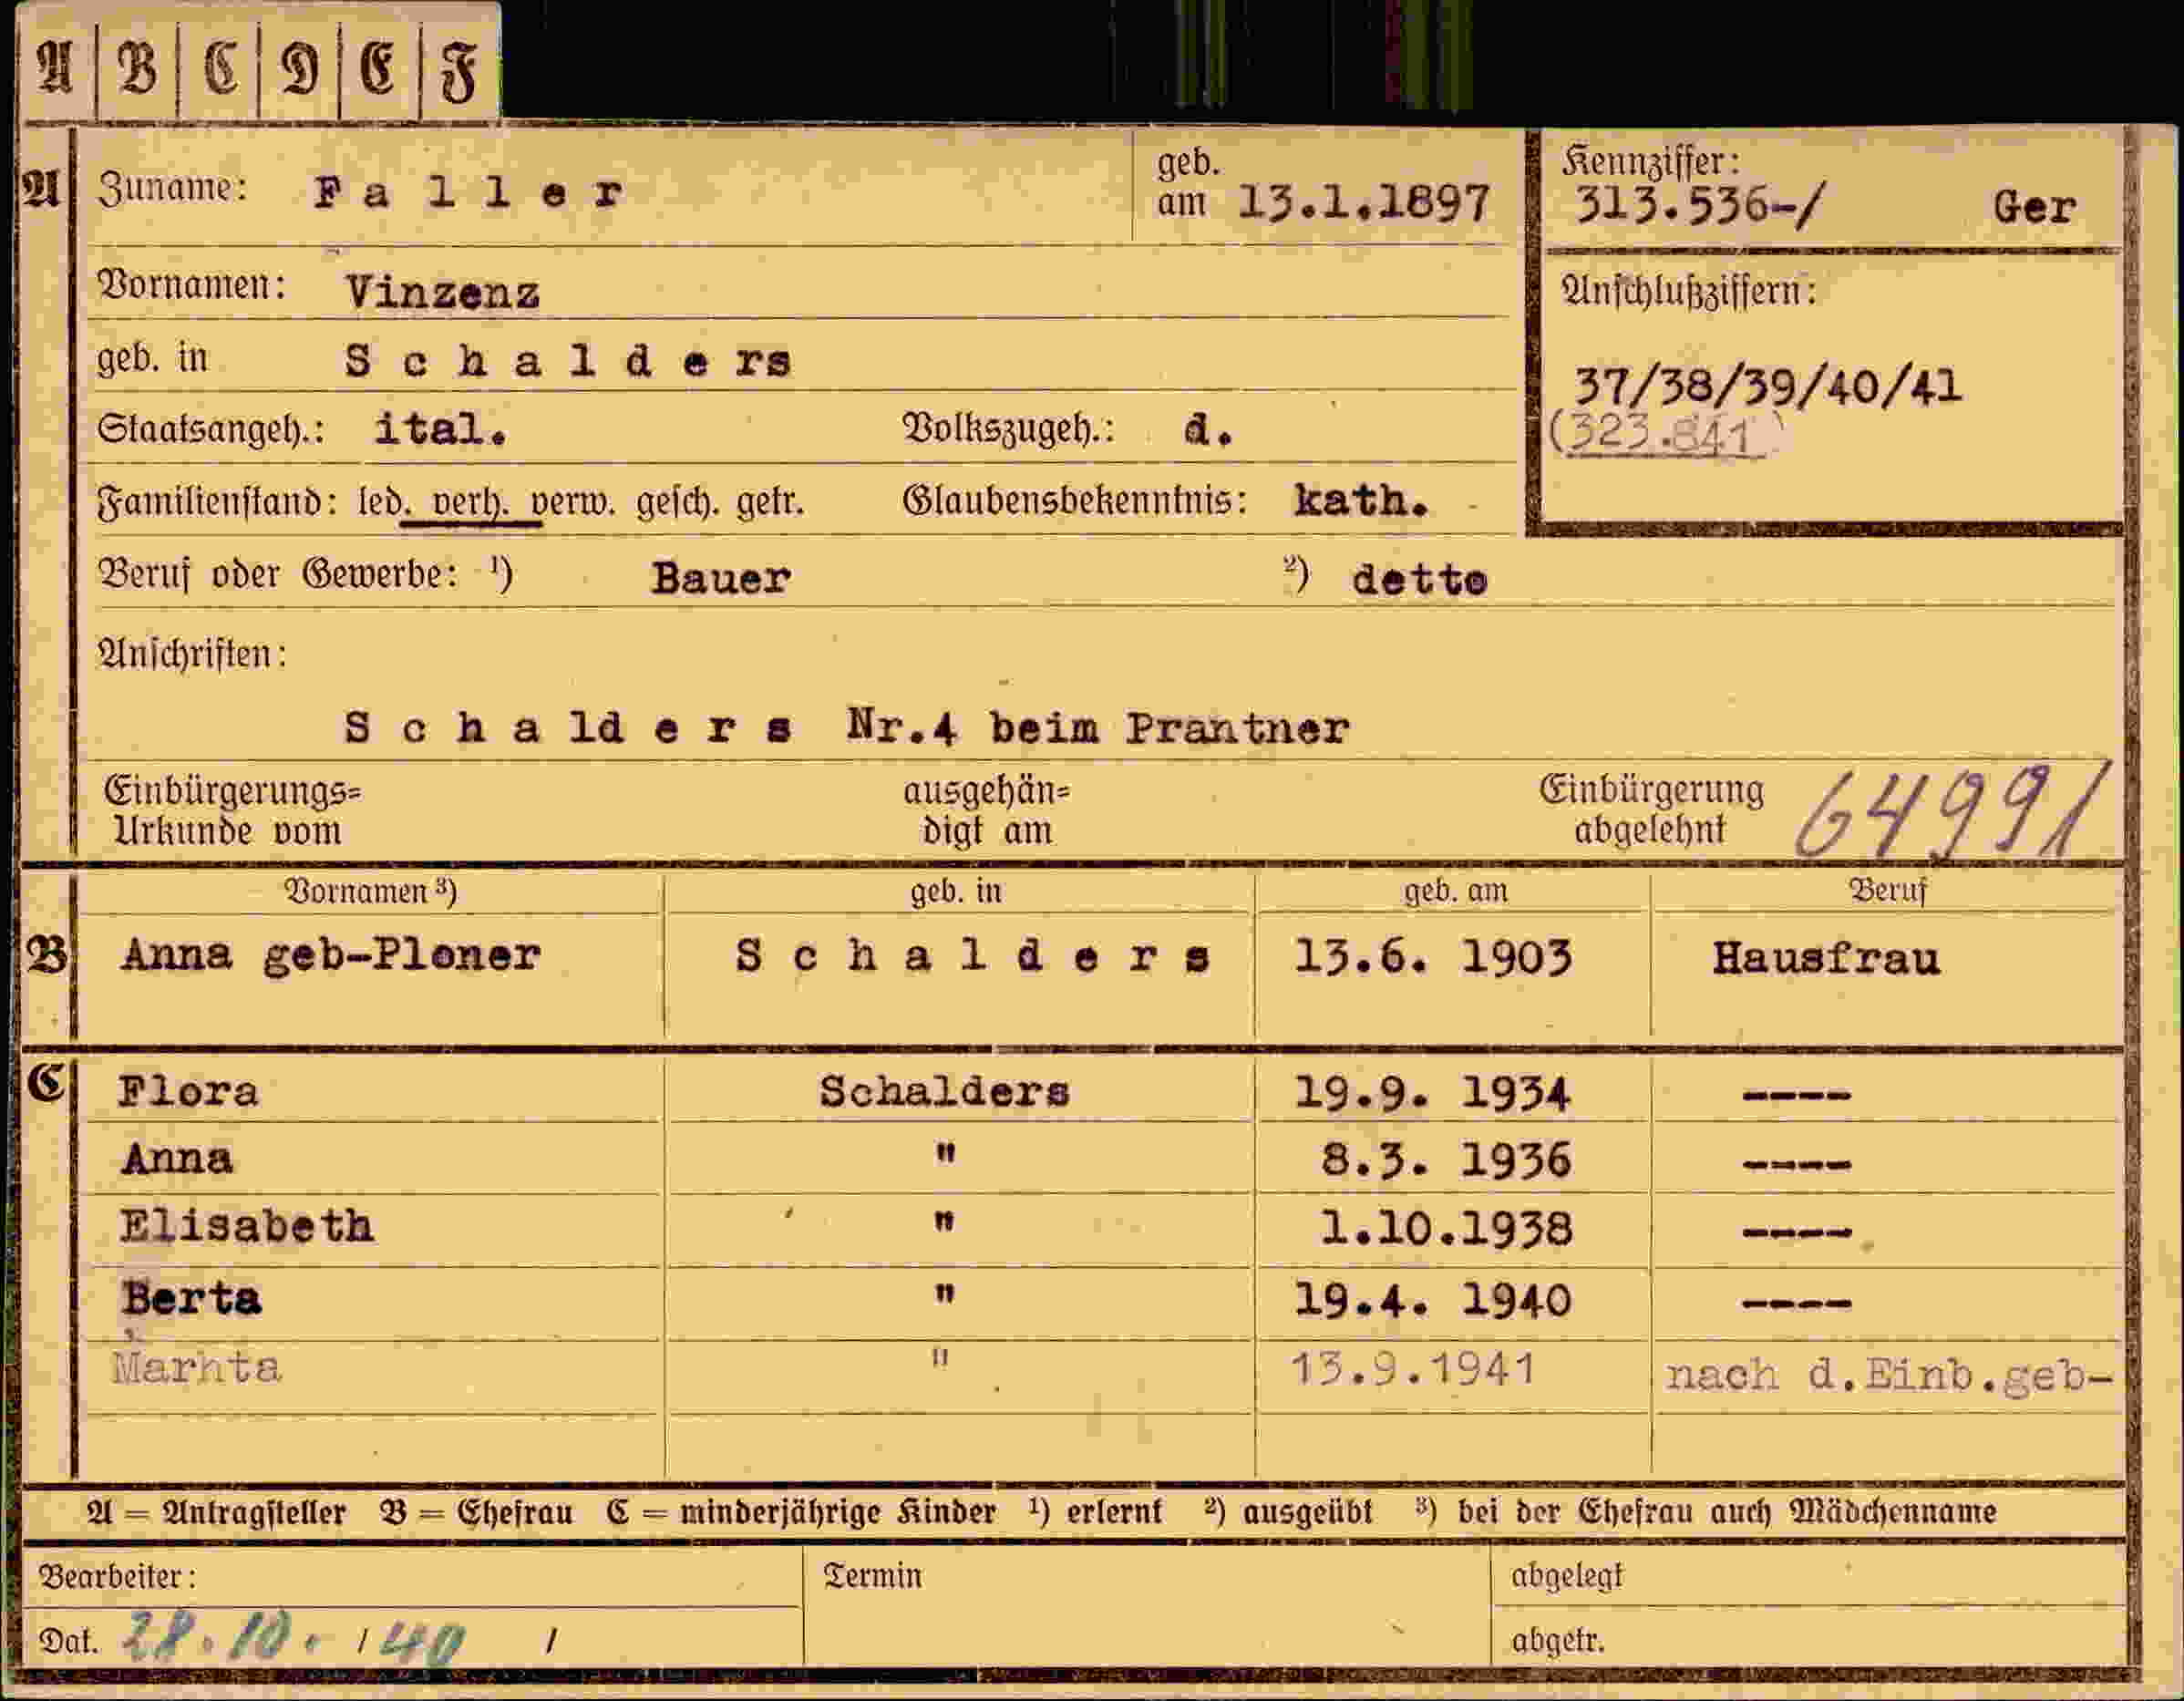 A B C D E F
A Zuname: F a l l e r geb. am 13.1.1897 Kennziffer: 313.536-/ Ger
Vornamen: Vinzenz
Anschlußziffern:
geb. in S c h a l d e rs
37/38/39/40/41
Staatsangeh.: ital. Volkszugeh.: d.
(323.841)
Familienstand: led. verh. verw. gesch. getr. Glaubensbekenntnis: kath.
Beruf oder Gewerbe: ¹) Bauer ²) detto
Anschriften:
S c h a ld e r s Nr.4 beim Prantner
Einbürgerungs= ausgehän= Einbürgerung 64991
Urkunde vom digt am abgelehnt
Vornamen ³) geb. in geb. am Beruf
B Anna geb-Ploner S c h a l d e r s 13.6. 1903 Hausfrau
C Flora Schalders 19.9. 1934 ----
Anna " 8.3. 1936 ----
Elisabeth " 1.10.1938 ----
Berta " 19.4. 1940 ----
Marhta " 13.9.1941 nach d.Einb.geb-
A = Antragsteller B = Ehefrau C = minderjährige Kinder ¹) erlernt ²) ausgeübt ³) bei der Ehefrau auch Mädchenname
Bearbeiter: Termin abgelegt
Dat. 28.10. / 40 / abgetr.